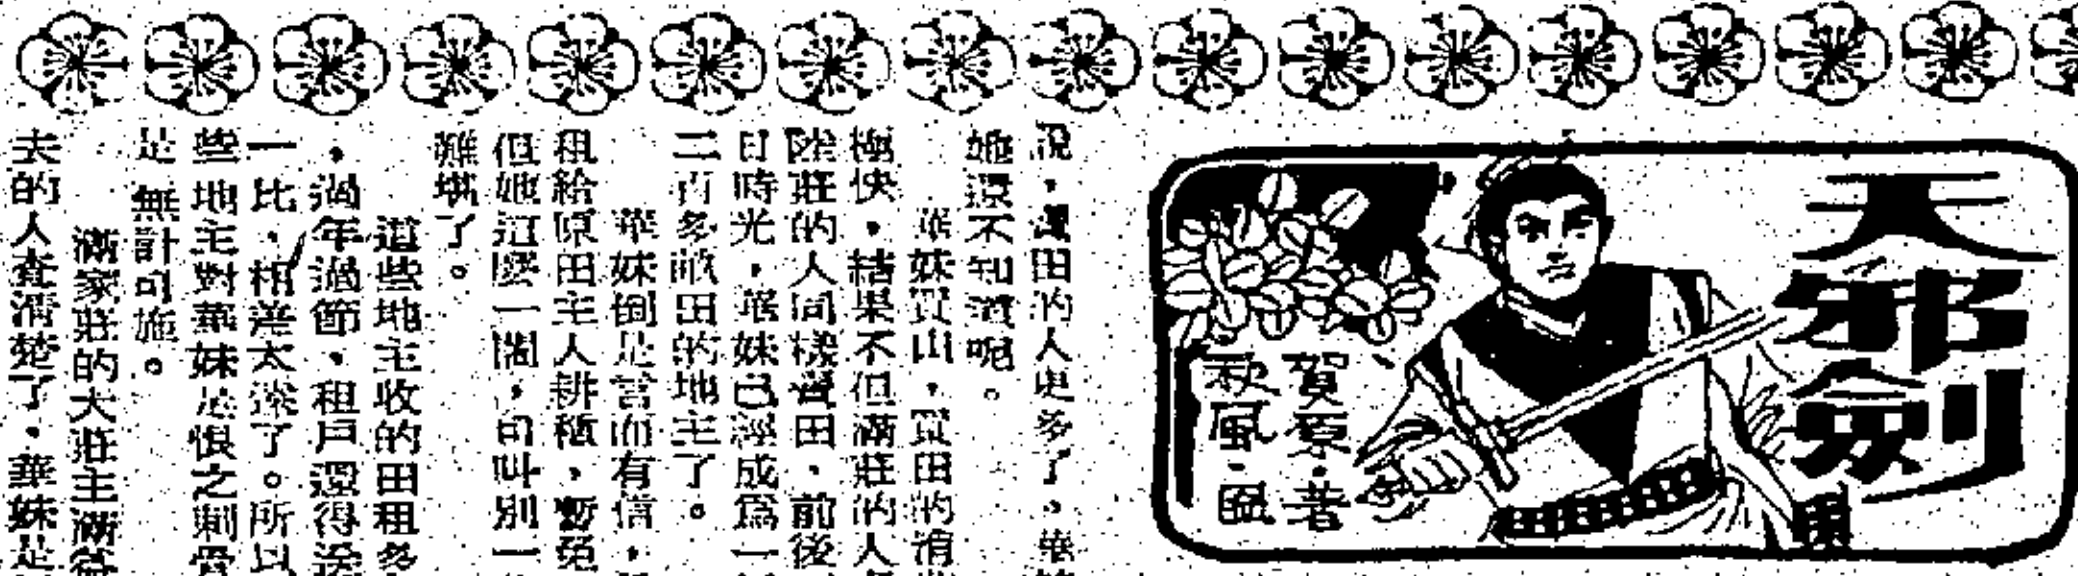 天邪劍
賀原·著
秋風·圖
說，賣田的人更多了，華
她還不知道呢。
華妹買山，買田的消
極快，結果不但滿莊的人
陸莊的人同樣賣田，前後
日時光，華妹已經成爲一
二百多畝田的地主了。
華妹倒是言而有信，
租給原田主人耕種，暫免
但她這麼一鬧，可叫別一
難堪了。
這些地主收的田租多
，過年過節，租戶還得送
一比，相差太遠了。所以
些地主對華妹是恨之刺骨
是無計可施。
滿家莊的大莊主滿
去的人查清楚了，華妹是